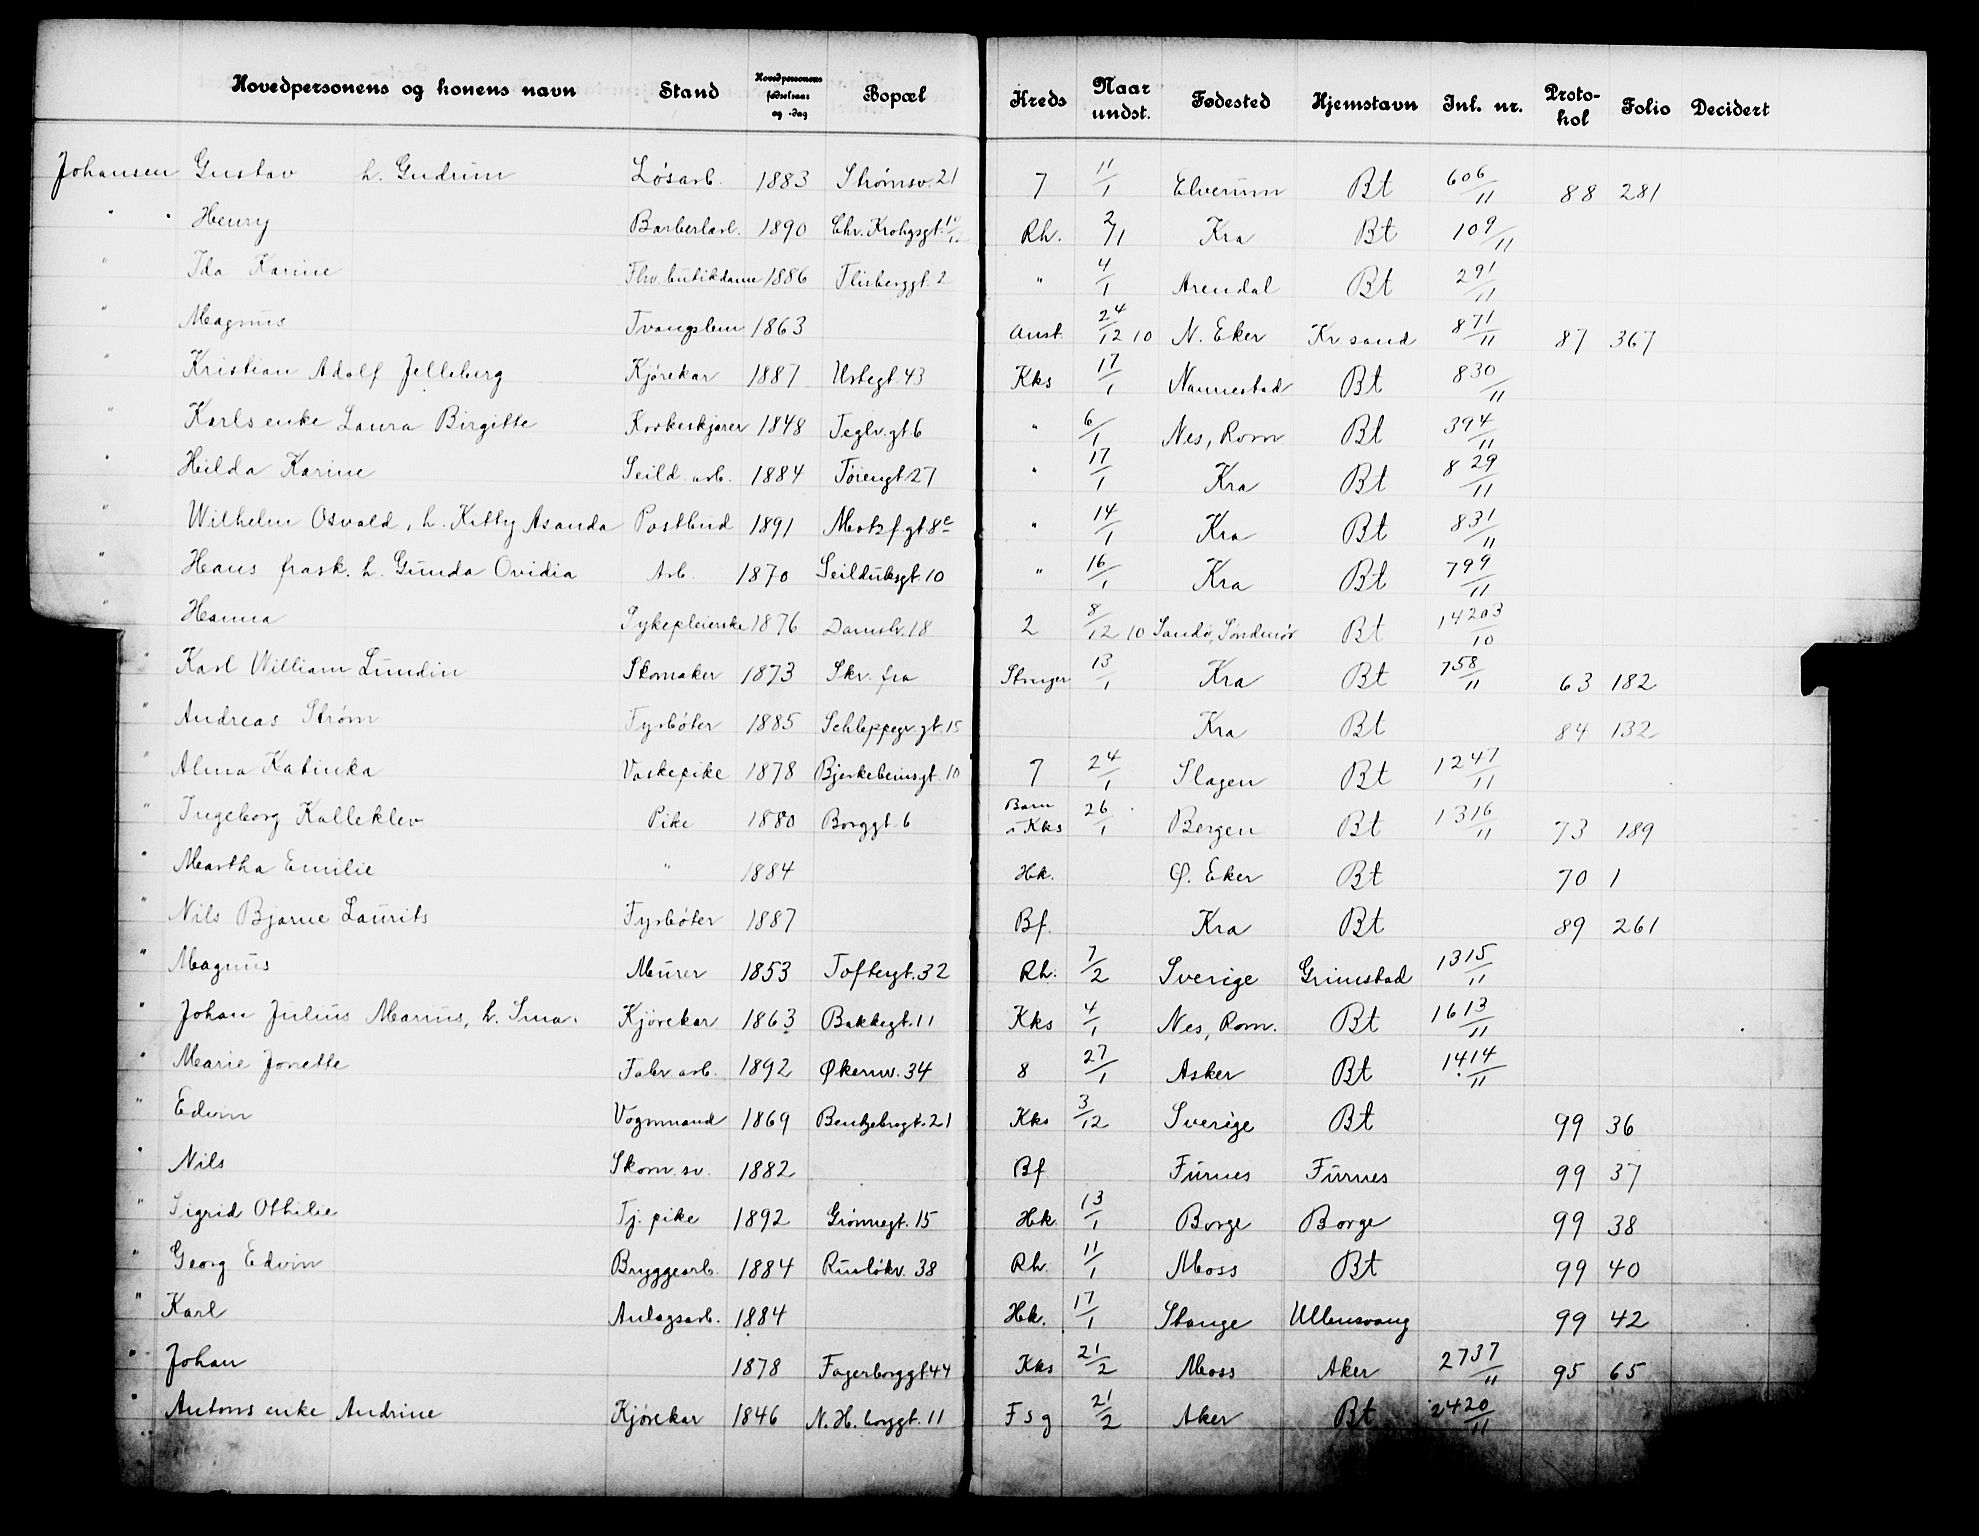 Hovedpersonens og konens navn Stand Hovedpersonens fødselsaar og -dag Bopæl Kreds Naar undst. Fødested Hjemstavn Inl. nr. Proto-kol Folio Decidert
Johansen Gustav h. Gudrun Løsarb. 1883 Strømsv. 21 7 11/1 Elverum Bt 606/11 88 281
" " Henry Barberlærl. 1890 Chr. Krohgsgt. Rh. 2/1 Kra Bt 109/11
" Ida Karine Fhv. butikdame 1886 Flisberggt. 2 " 4/1 Arendal Bt 291/11
" Magnus Tvangslem 1863 Anst. 24/12 10 N. Eker Kr sand 871/11 87 367
" Kristian Adolf Jelleberg Kjørekar 1887 Urtegt. 43 Kks 17/1 Nannestad Bt 830/11
" Karls enke Laura Birgitte Korkeskjærer 1848 Teglv.gt 6 " 6/1 Nes, Rom Bt 394/11
" Hilda Karine Seild. arb. 1884 Tøiengt 27 " 17/1 Kra Bt 829/11
" Wilhelm Osvald, h. Kitty Asanda Postbud 1891 Motzf.gt. 8c " 14/1 Kra Bt 831/11
" Hans frask. h. Gunda Ovidia Arb. 1870 Seilduksgt. 10 " 16/1 Kra Bt 799/11
" Hanna Sykepleierske 1876 Damslv. 18 2 8/12 10 Sandø, Søndmør Bt 14203/10
" Karl William Lundin Skomaker 1873 Skr. fra Stvnger 13/1 Kra Bt 758/11 63 182
" Andreas Strøm Fyrbøter 1885 Schleppegr.gt. 15 Kra Bt 84 132
" Alma Katinka Vaskepike 1878 Bjerkebeinsgt. 10 7 24/1 Slagen Bt 1247/11
" Ingeborg Kalleklev Pike 1880 Borggt. 6 Barn i Kks 26/1 Bergen Bt 1316/11 73 189
" Martha Emilie " 1884 Hk. Ø. Eker Bt 70 1
" Nils Bjarne Laurits Fyrbøter 1887 Bf. Kra Bt 89 261
" Magnus Murer 1853 Toftesgt. 32 Rh. 7/2 Sverige Grimstad 1315/11
" Johan Julius Marius, h. Sina. Kjørekar 1863 Bakkegt. 11 Kks 4/1 Nes, Rom. Bt 1613/11
" Marie Jonette Fabr. arb. 1892 Økernv. 34 8 27/1 Asker Bt 1414/11
" Edvin Vognmand 1869 Bentzebrogt. 21 Kks 3/12 Sverige Bt 99 36
" Nils Skom. sv. 1882 Bf. Furnes Furnes 99 37
" Sigrid Othilie Tj. pike 1892 Grønnegt. 15 Hk. 13/1 Borge Borge 99 38
" Georg Edvin Bryggearb. 1884 Rusløkv. 38 Rh. 11/1 Moss Bt 99 40
" Karl Anlagsarb. 1884 Hk. 17/1 Stange Ullensvang 99 42
" Johan 1878 Fagerborggt. 44 Kks 21/2 Moss Aker 2737/11 95 65
" Antons enke Andrine Kjørekar 1846 N. H. berggt. 11 Fsg 2/2 Aker Bt 2420/11